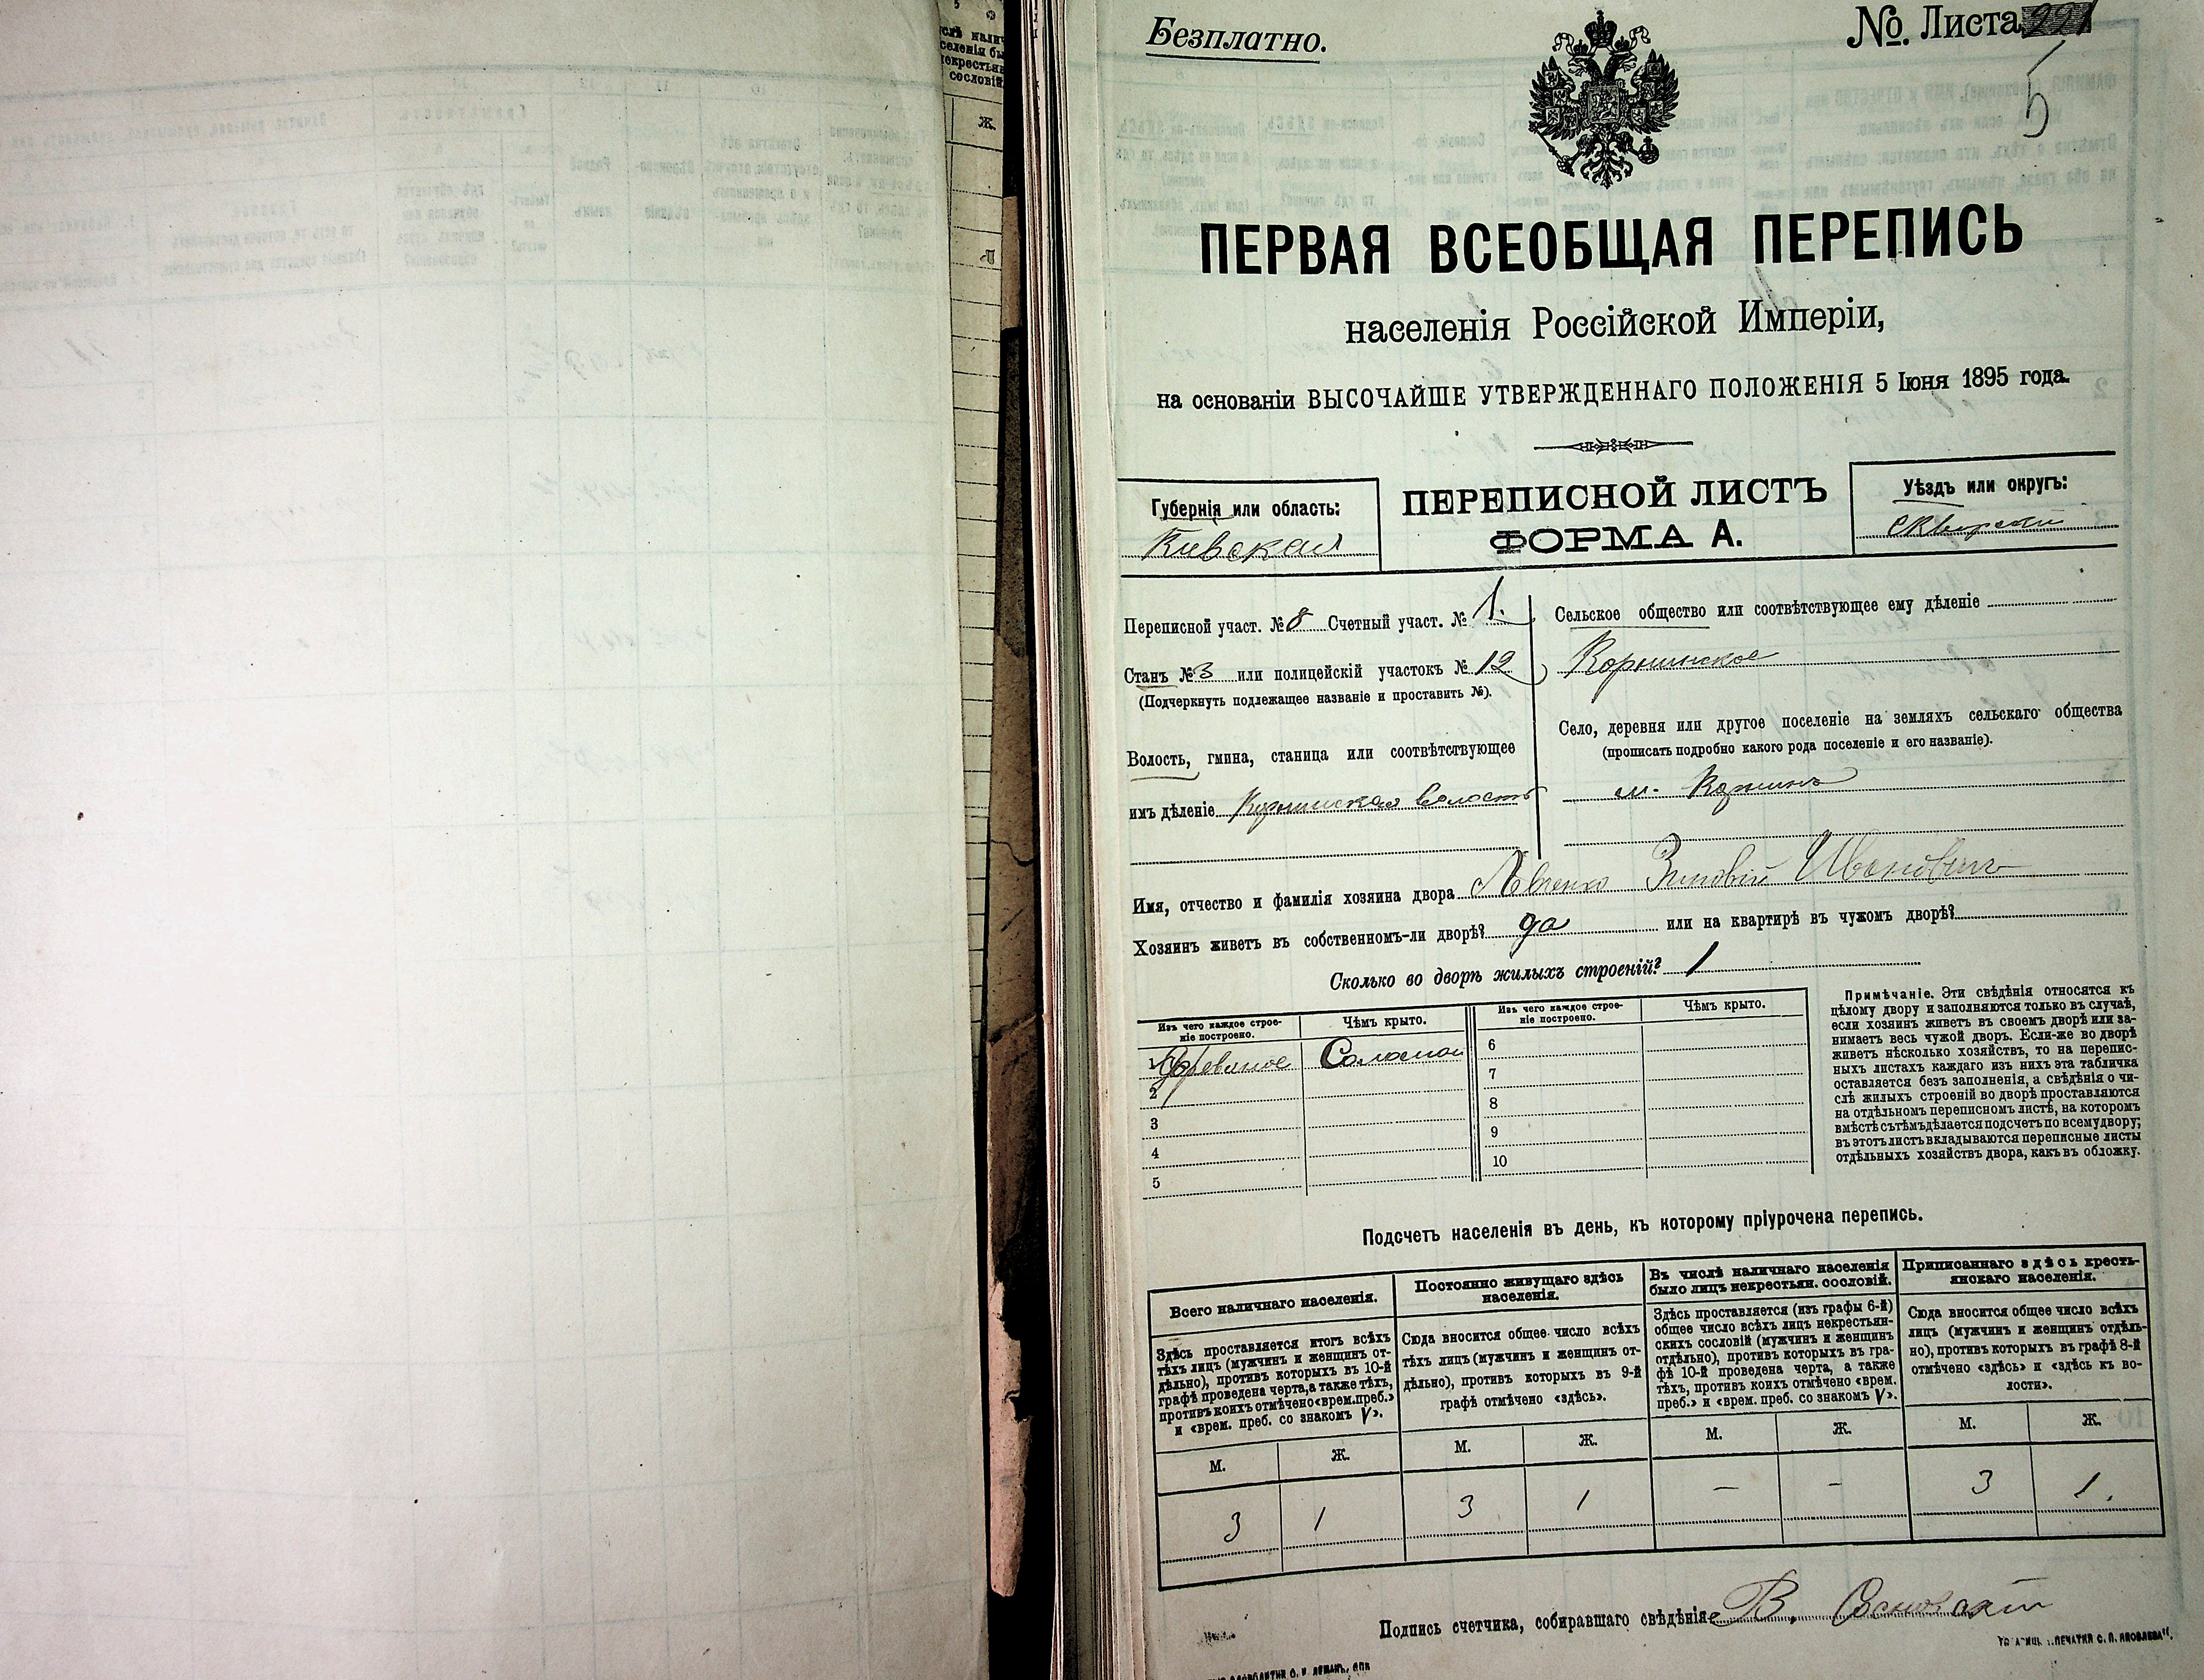 Безплатно.
№. Листа 221
5
ПЕРВАЯ ВСЕОБЩАЯ ПЕРЕПИСЬ
населенія Россійской Имперіи,
на основаніи ВЫСОЧАЙШЕ УТВЕРЖДЕННАГО ПОЛОЖЕНІЯ 5 Іюня 1895 года.
Губернія или область:
Киевская
ПЕРЕПИСНОЙ ЛИСТЪ
ФОРМА А.
Уѣздъ или округъ:
Сквирский
Переписной участ. № 8 Счетный участ. № 1.
Станъ № 3 или полицейскій участокъ № 12
(Подчеркнуть подлежащее названіе и проставить №).
Волость, гмина, станица или соотвѣтствующее
имъ дѣленіе Корнинская волость
Сельское общество или соотвѣтствующее ему дѣленіе
Корнинское
Село, деревня или другое поселеніе на земляхъ сельскаго общества
(прописать подробно какого рода поселеніе и его названіе).
м. Корнинъ
Имя, отчество и фамилія хозяина двора Зиновій Ивановичъ
Хозяинъ живетъ въ собственномъ-ли дворѣ? да или на квартирѣ въ чужомъ дворѣ?
Сколько во дворѣ жилыхъ строеній? 1
Изъ чего каждое строе-
ніе построено.
Чѣмъ крыто.
Изъ чего каждое строе-
ніе построено.
Чѣмъ крыто.
1 Деревяное Соломой
2
3
4
5
6
7
8
9
10
Примѣчаніе. Эти свѣдѣнія относятся къ
цѣлому двору и заполняются только въ случаѣ,
если хозяинъ живетъ въ своемъ дворѣ или за-
нимаетъ весь чужой дворъ. Если-же во дворѣ
живетъ нѣсколько хозяйствъ, то на перепис-
ныхъ листахъ каждаго изъ нихъ эта табличка
оставляется безъ заполненія, а свѣдѣнія о чи-
слѣ жилыхъ строеній во дворѣ проставляются
на отдѣльномъ переписномъ листѣ, на которомъ
вмѣстѣ съ тѣмъ дѣлается подсчетъ по всему двору;
въ этотъ листъ вкладываются переписные листы
отдѣльныхъ хозяйствъ двора, какъ въ обложку.
Подсчетъ населенія въ день, къ которому пріурочена перепись.
Всего наличнаго населенія.
Здѣсь проставляется итогъ всѣхъ
тѣхъ лицъ (мужчинъ и женщинъ от-
дѣльно), противъ которыхъ въ 10-й
графѣ проведена черта, а также тѣхъ,
противъ коихъ отмѣчено «врем. преб.»
и «врем. преб. со знакомъ V».
М. Ж.
3 1
Постоянно живущаго здѣсь
населенія.
Сюда вносится общее число всѣхъ
тѣхъ лицъ (мужчинъ и женщинъ от-
дѣльно), противъ которыхъ въ 9-й
графѣ отмѣчено «здѣсь».
М. Ж.
3 1
Въ числѣ наличнаго населенія
было лицъ некрестьян. сословій.
Здѣсь проставляется (изъ графы 6-й)
общее число всѣхъ лицъ некрестьян-
скихъ сословій (мужчинъ и женщинъ
отдѣльно), противъ которыхъ въ гра-
фѣ 10-й проведена черта, а также
тѣхъ, противъ коихъ отмѣчено «врем.
преб.» и «врем. преб. со знакомъ V».
М. Ж.
— —
Приписаннаго здѣсь кресть-
янскаго населенія.
Сюда вносится общее число всѣхъ
лицъ (мужчинъ и женщинъ отдѣль-
но), противъ которыхъ въ графѣ 8-й
отмѣчено «здѣсь» и «здѣсь къ во-
лости».
М. Ж.
3 1.
Подпись счетчика, собиравшаго свѣдѣнія В.